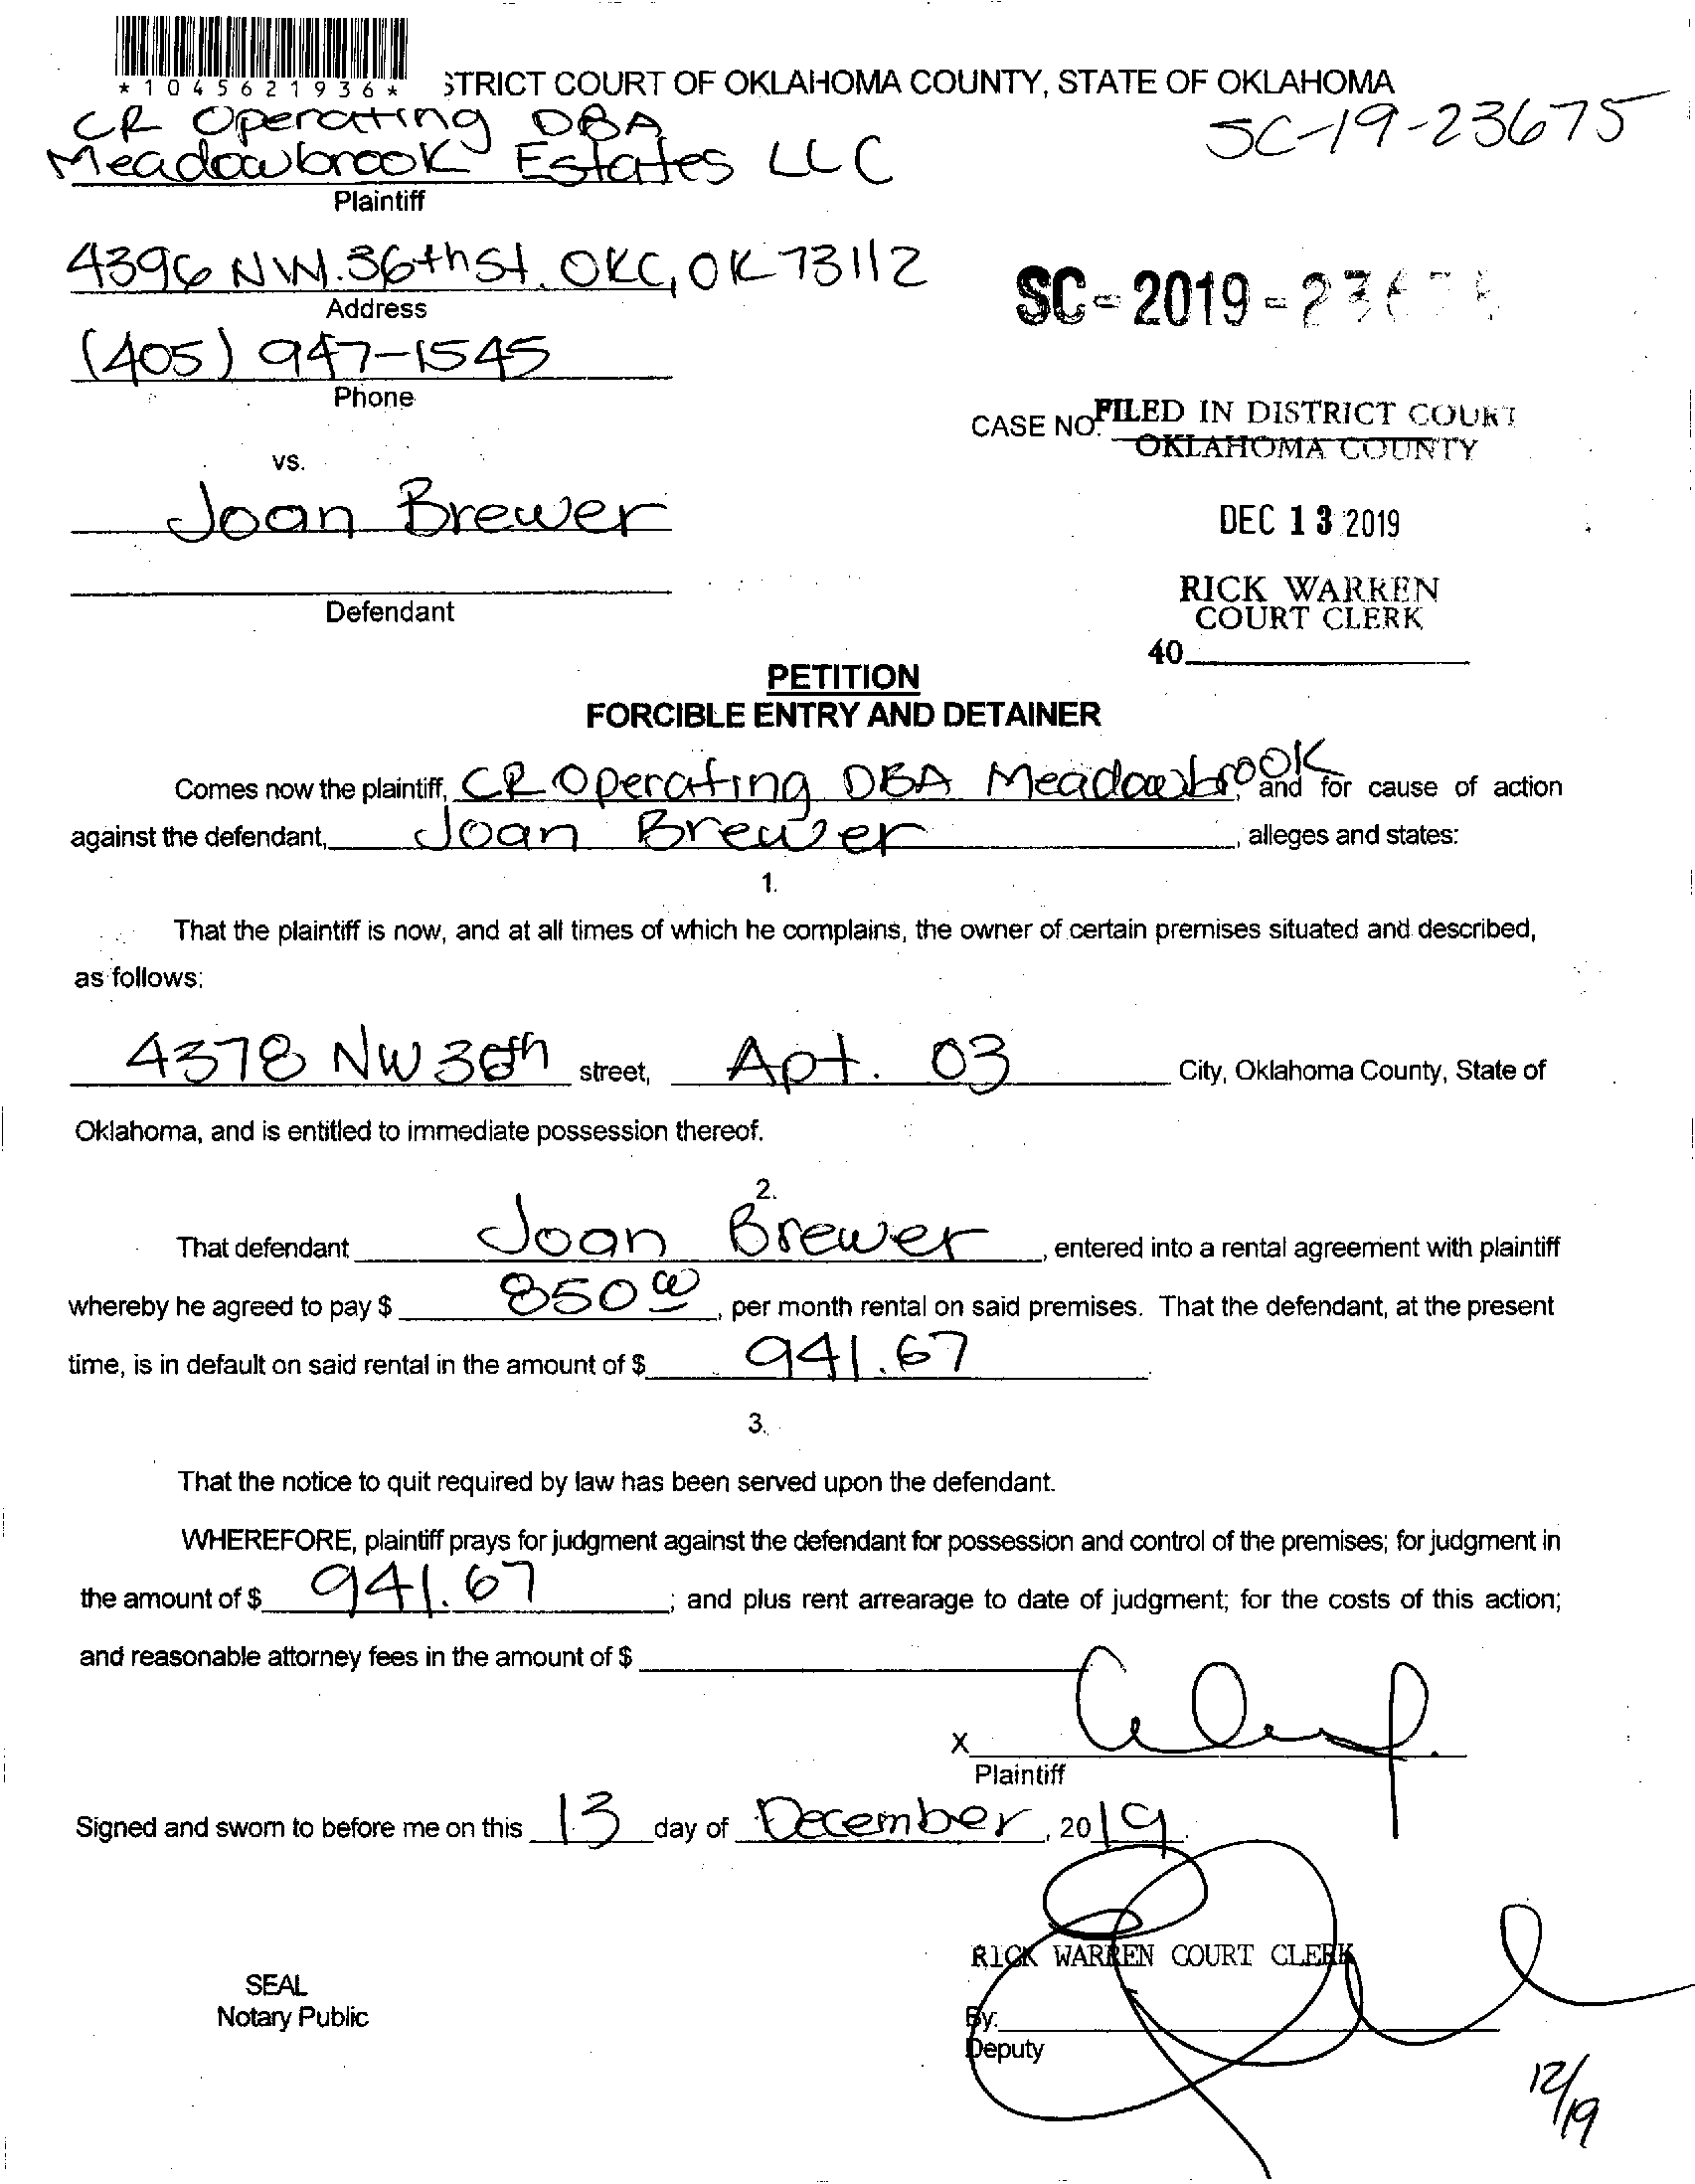 *1045621936*
STRICT COURT OF OKLAHOMA COUNTY, STATE OF OKLAHOMA
CR Operating DBA
Meadowbrook Estates LLC
SC-19-23675
Plaintiff
4396 NW. 36th St. OKC, OK 73112
Address
SC-2019-23675
(405) 947-1545
Phone
CASE NO.
FILED IN DISTRICT COURT
OKLAHOMA COUNTY
vs.
Joan Brewer
DEC 13 2019
RICK WARREN
COURT CLERK
Defendant
40
PETITION
FORCIBLE ENTRY AND DETAINER
Comes now the plaintiff, CR Operating DBA Meadowbrook, and for cause of action
against the defendant, Joan Brewer, alleges and states:
1.
That the plaintiff is now, and at all times of which he complains, the owner of certain premises situated and described,
as follows:
4378 NW 36th street, Apt. 03 City, Oklahoma County, State of
Oklahoma, and is entitled to immediate possession thereof.
2.
That defendant Joan Brewer, entered into a rental agreement with plaintiff
whereby he agreed to pay $ 850 00, per month rental on said premises. That the defendant, at the present
time, is in default on said rental in the amount of $ 941.67.
3.
That the notice to quit required by law has been served upon the defendant.
WHEREFORE, plaintiff prays for judgment against the defendant for possession and control of the premises; for judgment in
the amount of $ 941.67; and plus rent arrearage to date of judgment; for the costs of this action;
and reasonable attorney fees in the amount of $
X
Plaintiff
Signed and sworn to before me on this 13 day of December, 2019.
RICK WARREN COURT CLERK
SEAL
Notary Public
By:
Deputy
12/19